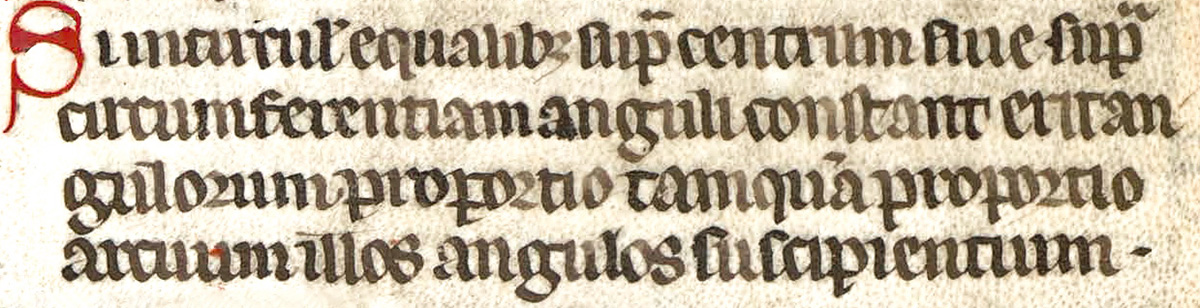 Si in circul̕ equalibꝫ sup̄ centrum siue sup̄
circumferentiam anguli constant erit an
gulorum proportio tamquā proportio
arcuum illos angulos suscipientium .